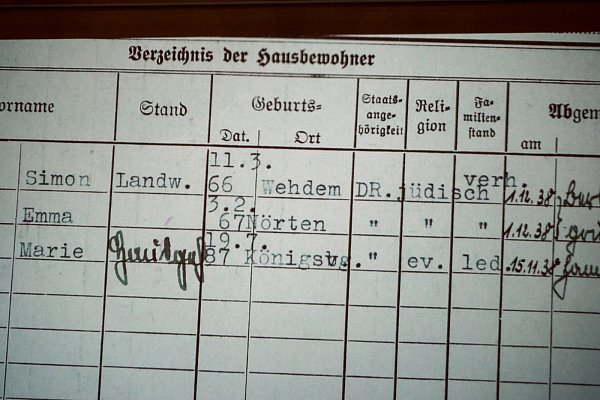 Verzeichnis der Hausbewohner
orname Stand Geburts= Staats- ange- hörigkeit Reli- gion Fa- milien- stand Abgem
Dat. Ort am
11.3. verh.
Simon Landw. 66 Wehdem DR. jüdisch 1.12.38
3.2.
Emma 67 Nörten " " " 1.12.38
19.7.
Marie 87 Königsbg. " ev. led 15.11.38